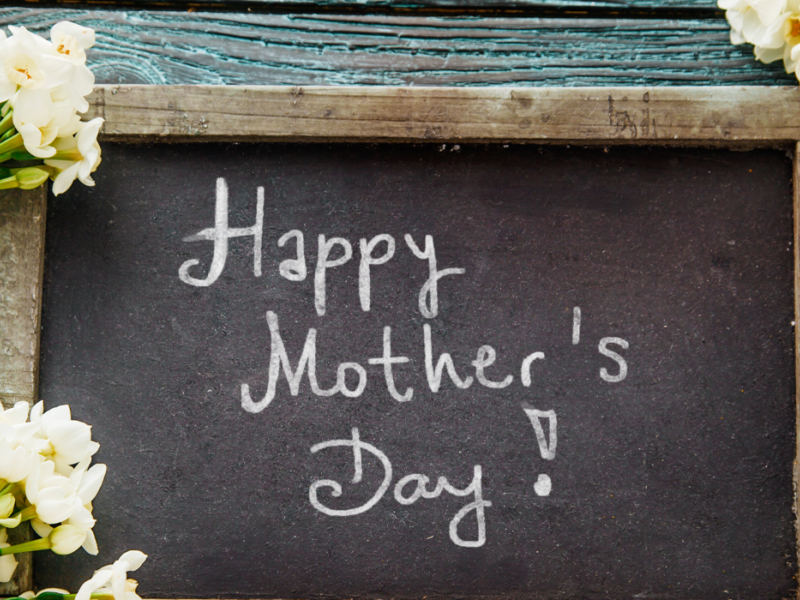 Happy
Mother's
Day!